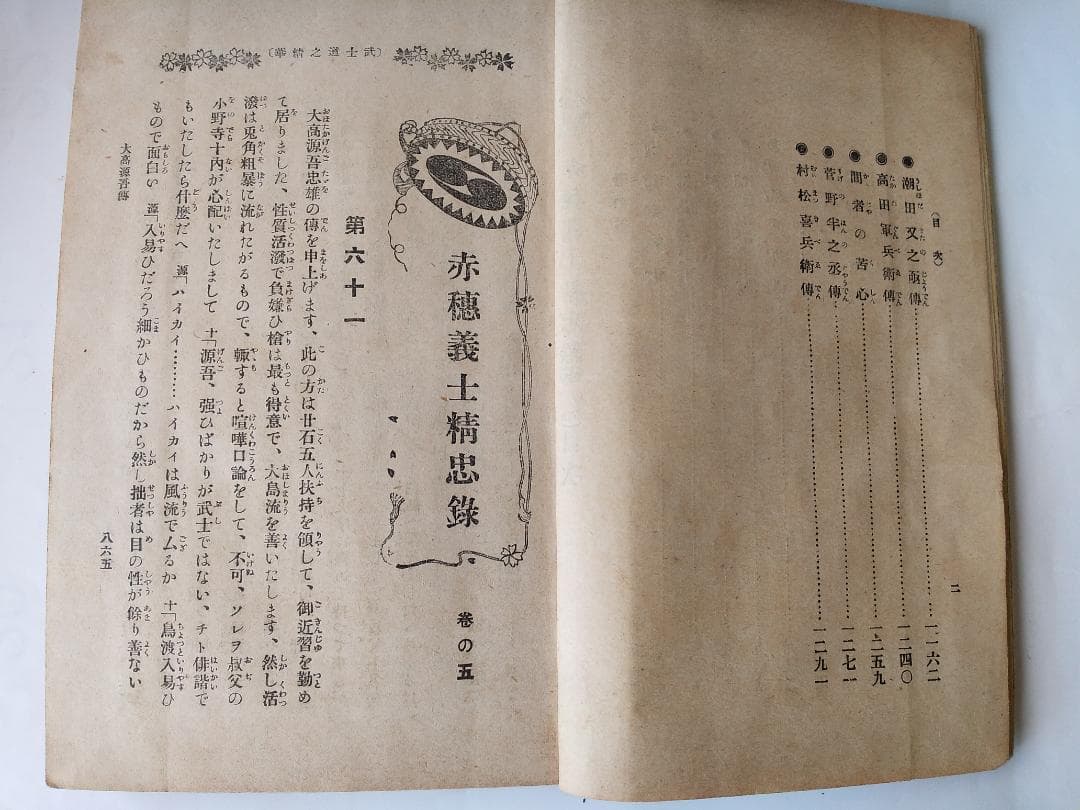 (目次)
潮田又之亟傳………一一六二
高田軍兵衛傳………一二四〇
間者の苦心………一二五九
菅野半之丞傳………一二七一
村松喜兵衛傳………一二九一
二
(武士道之精華)
赤穗義士精忠錄
卷の五
第六十一
大高源吾忠雄の傳を申上げます、此の方は廿石五人扶持を領して、御近習を勤め
て居りました、性質活潑で負嫌ひ槍は最も得意で、大島流を善いたします、然し活
潑は兎角粗暴に流れたがるもので、輙すると喧嘩口論をして、不可、ソレヲ叔父の
小野寺十内が心配いたしまして 十「源吾、强ひばかりが武士ではない、チト俳諧で
もいたしたら什麽だへ 源「ハイカイ………ハイカイは風流で厶るか 十「鳥渡入易ひ
もので面白い 源「入易ひだろう細かひものだから然し拙者は目の性が餘り善ない
大高源吾傳
八六五